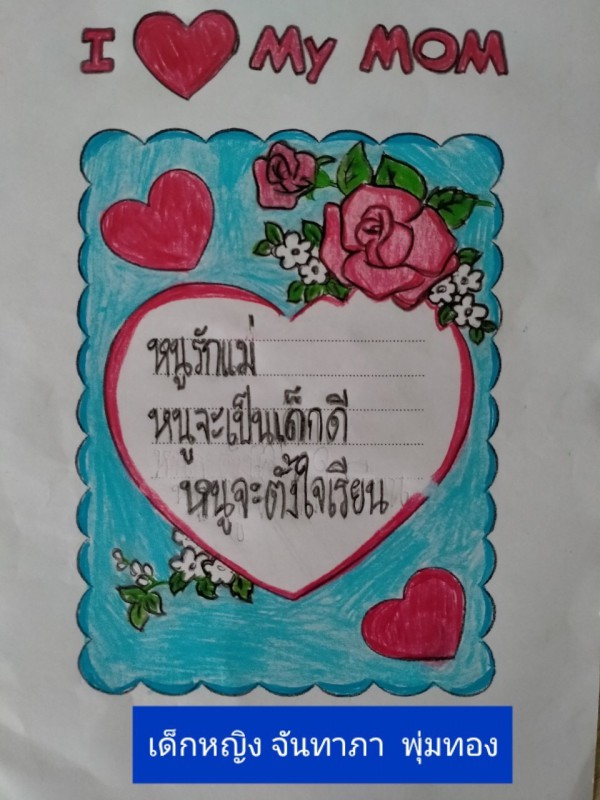 I ❤ My MOM
หนูรักแม่
หนูจะเป็นเด็กดี
หนูจะตั้งใจเรียน
เด็กหญิง จันทาภา พุ่มทอง